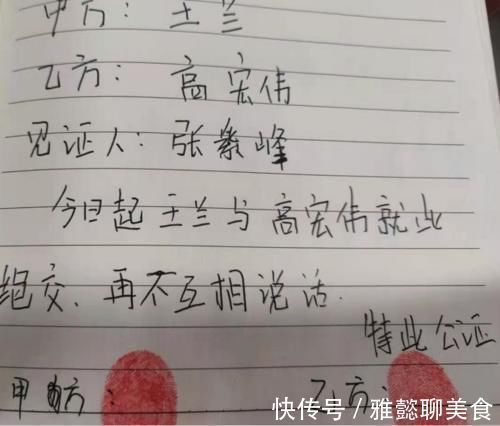 甲方：王兰
乙方：高宏伟
见证人：张紫峰
今日起王兰与高宏伟就此
绝交，再不互相说话.
特此公证
甲方：
乙方：
快传号/雅懿聊美食